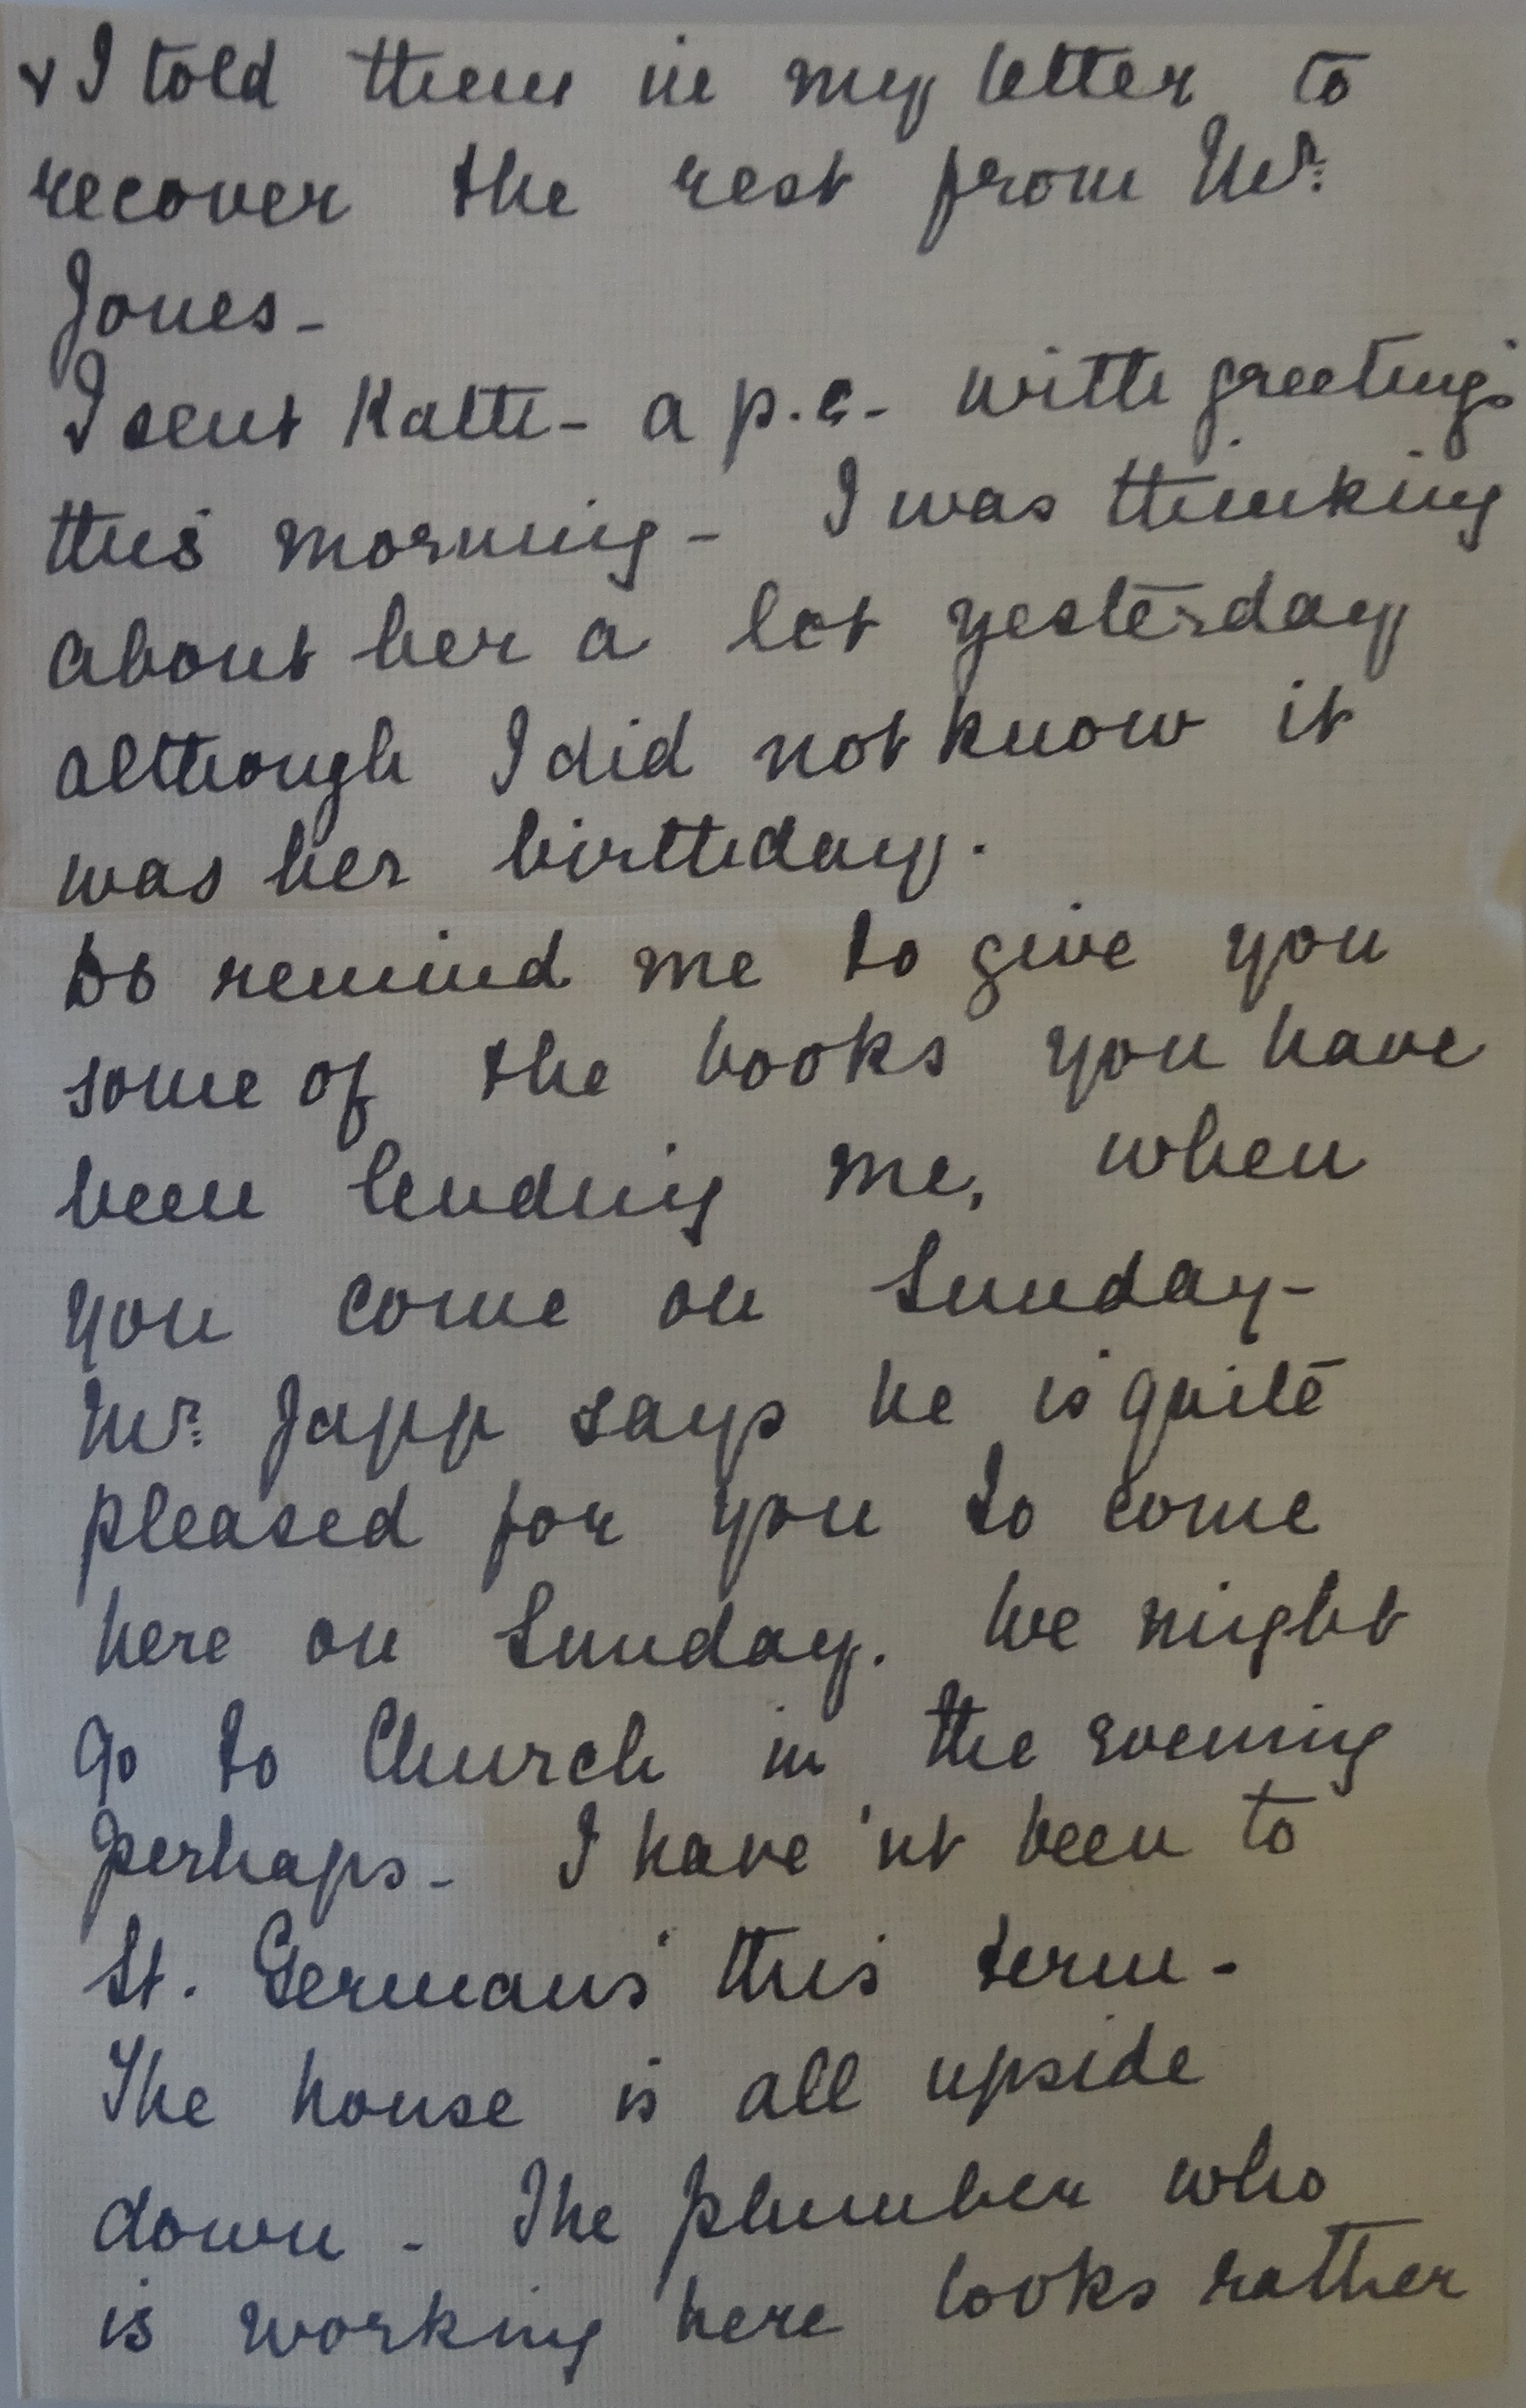 & I told them in my letter to
recover the rest from Mr.
Jones -
I sent Kath - a p.c. - with greetings
this morning - I was thinking
about her a lot yesterday
although I did not know it
was her birthday.
Do remind me to give you
some of the books you have
been lending me, when
you come on Sunday -
Mr. Japp says he is quite
pleased for you to come
here on Sunday. We might
go to Church in the evening
perhaps - I have'nt been to
St. Germans' this term -
The house is all upside
down - The plumber who
is working here looks rather